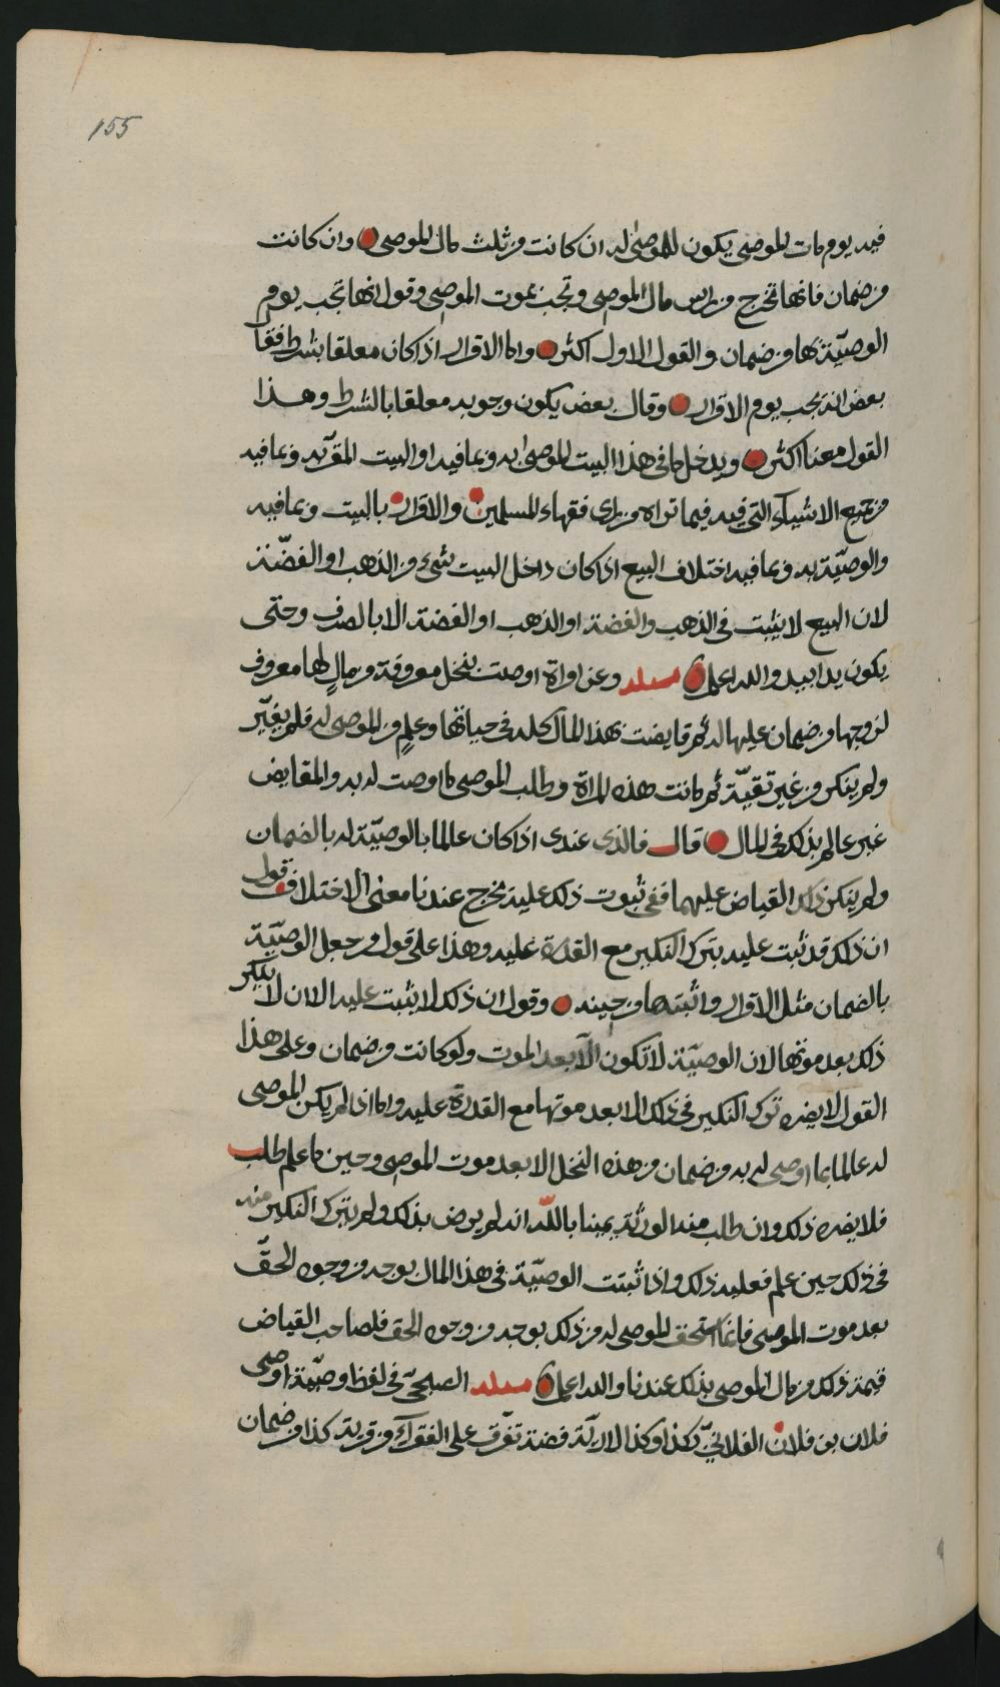 155
فيه يوم مات الموصي يكون للموصى له ان كانت من ثلث مال الموصي وان كانت
من ضمان فانها تخرج من راس مال الموصي وتجب بموت الموصي وقول انها تجب يوم
الوصيّة بها من ضمان والقول الاول اكثر واما الاقرار اذا كان معلقا بشرط فقا
بعض انه يجب يوم الاقرار وقال بعض يكون وجوبه معلقا بالشرط وهذا
القول معنا اكثر ويدخل ما في هذا البيت الموصى به وبما فيه او البيت المقرّ به وبما فيه
من جميع الاشياء التي فيه فيما نراه من راي فقهاء المسلمين والاقرار بالبيت وبما فيه
والوصيّة به وبما فيه اختلاف البيع اذا كان داخل البيت شيء من الذهب او الفضّة
لان البيع لا يثبت في الذهب والفضة او الذهب او الفضة الا بالصرف وحتى
يكون يدا بيد والله اعلم مسئلة وعن امراة اوصت بنخل معروفة من مال لها معروف
لزوجها من ضمان عليها له ثم قايضت بهذا المال كله في حياتها وعلم من الموصى له فلم يغيّر
ولم ينكر من غير تقيّة ثم ماتت هذه المراة وطلب الموصى ما اوصت له به والمقايض
غير عالم بذلك في المال قال فالذي عندي اذا كان عالما بالوصيّة له بالضمان
ولم ينكر ذلك القياض عليهما ففي ثبوت ذلك عليه يخرج عندنا معنى الاختلاف قول
ان ذلك قد ثبت عليه بترك النكير مع القدرة عليه وهذا على قول من جعل الوصيّة
بالضمان مثل الاقرار واثبتها من حينه وقول ان ذلك لا يثبت عليه الا ان لا ينكر
ذلك بعد موتها لان الوصيّة لا تكون الّا بعد الموت ولو كانت من ضمان وعلى هذا
القول لا يضره ترك النكير في ذلك الا بعد موتها مع القدرة عليه واما اذا لم يكن الموصى
له عالما بما اوصي له به من ضمان من هذه النخل الا بعد موت الموصي وحين ما علم طلب
فلا يضره ذلك وان طلب منه الورثة يمينا باللّه انه لم يرض بذلك ولم يترك النكير منه
في ذلك حين علم فعليه ذلك واذا ثبتت الوصيّة في هذا المال بوجه من وجوه الحقّ
بعد موت الموصي فانما استحق الموصى له من ذلك بوجه من وجوه الحق فلصاحب القياض
قيمة ذلك من مال الموصي بذلك عندنا والله اعلم مسئلة الصبحيّ في لفظ وصيّة اوصى
فلان بن فلان الفلانيّ بكذا وكذا لاريّة فضة تفرّق على الفقرآء من قرية كذا من ضمان